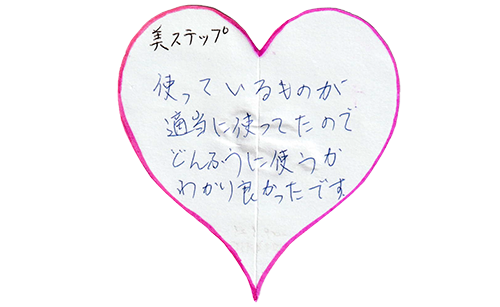 美ステップ
使っているものが
適当に使ってたので
どんふうに使うか
わかり良かったです